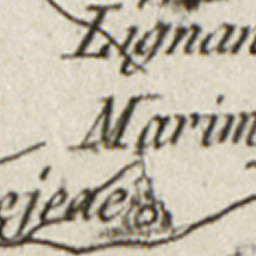 Lignan
Marim
ejede